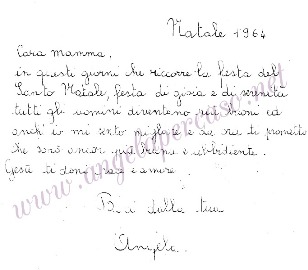 Natale 1964
Cara Mamma,
in questi giorni che ricorre la festa del
Santo Natale, festa di gioia e di serenità
tutti gli uomini diventano più buoni ed
anch'io mi sento migliore e ti prometto
che sarò ancor più buona e ubbidiente.
Gesù ti doni pace e amore.
dalla tua
Angela
www.ungelopercaso.net